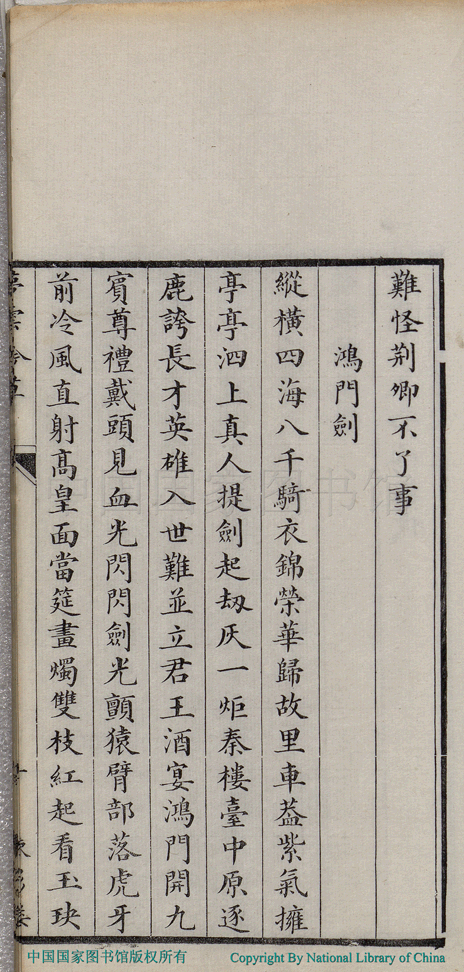 難怪荆卿不了事
鴻門劍
縱橫四海八千騎衣錦榮華歸故里車葢紫氣擁
亭亭泗上真人提劍起刼灰一炬秦樓臺中原逐
鹿誇長才英雄入世難並立君王酒宴鴻門開九
賓尊禮戴頭見血光閃閃劍光顫猿臂部落虎牙
前冷風直射髙皇面當筵畫燭雙枝紅起看玉玦
中国国家图书馆版权所有
Copyright By National Library of China